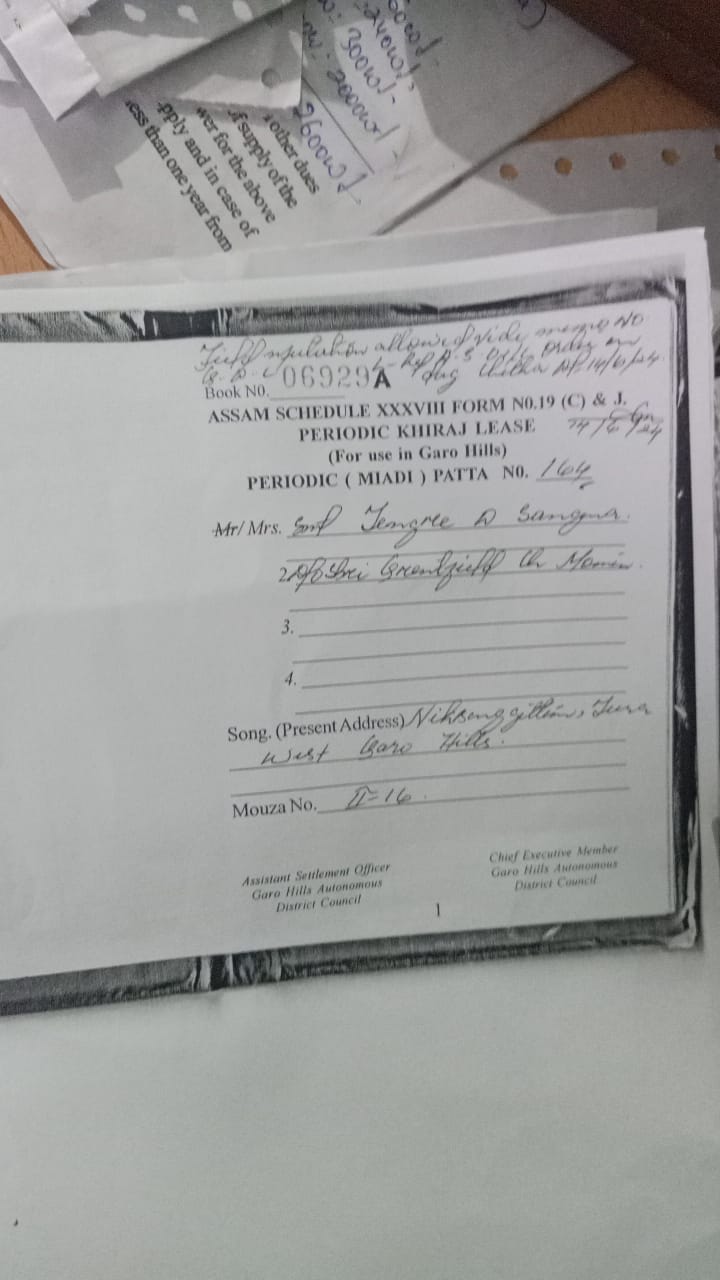 600w/-
240w/-
300w/-
2000w/-
2600w/-
other dues
of supply of the
wer for the above
pply and in case of
ess than one year from
allowed vide memo NO
order
Dt. 14/6/24
Book N0. 06929A
ASSAM SCHEDULE XXXVIII FORM N0.19 (C) & J.
PERIODIC KHIRAJ LEASE
(For use in Garo Hills)
PERIODIC ( MIADI ) PATTA N0. 164
Mr/ Mrs. Smt Tengree D Sangma.
2. D/o Shri Ch Momin.
3.
4.
Song. (Present Address) Tura
West Garo Hills.
Mouza No. II-16.
Assistant Settlement Officer
Garo Hills Autonomous
District Council
Chief Executive Member
Garo Hills Autonomous
District Council
1